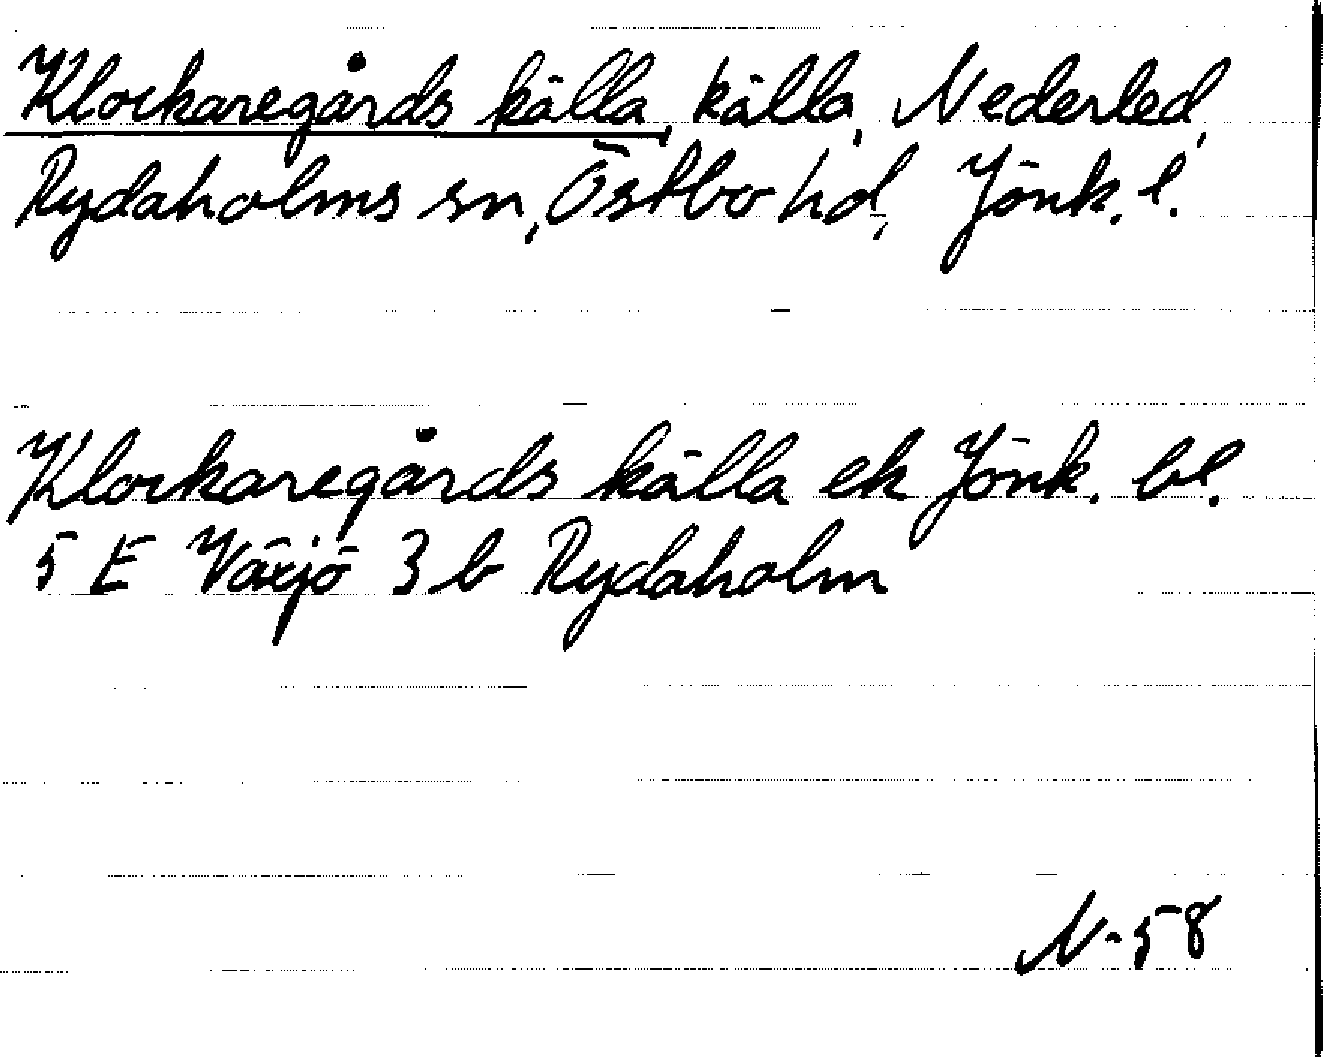 Klockaregårds källa, källa, Nederled,
Rydaholms sn, Östbo hd, Jönk. l.
Klockaregårds källa ek Jönk. bl.
5 E Växjö 3 b Rydaholm
N-58